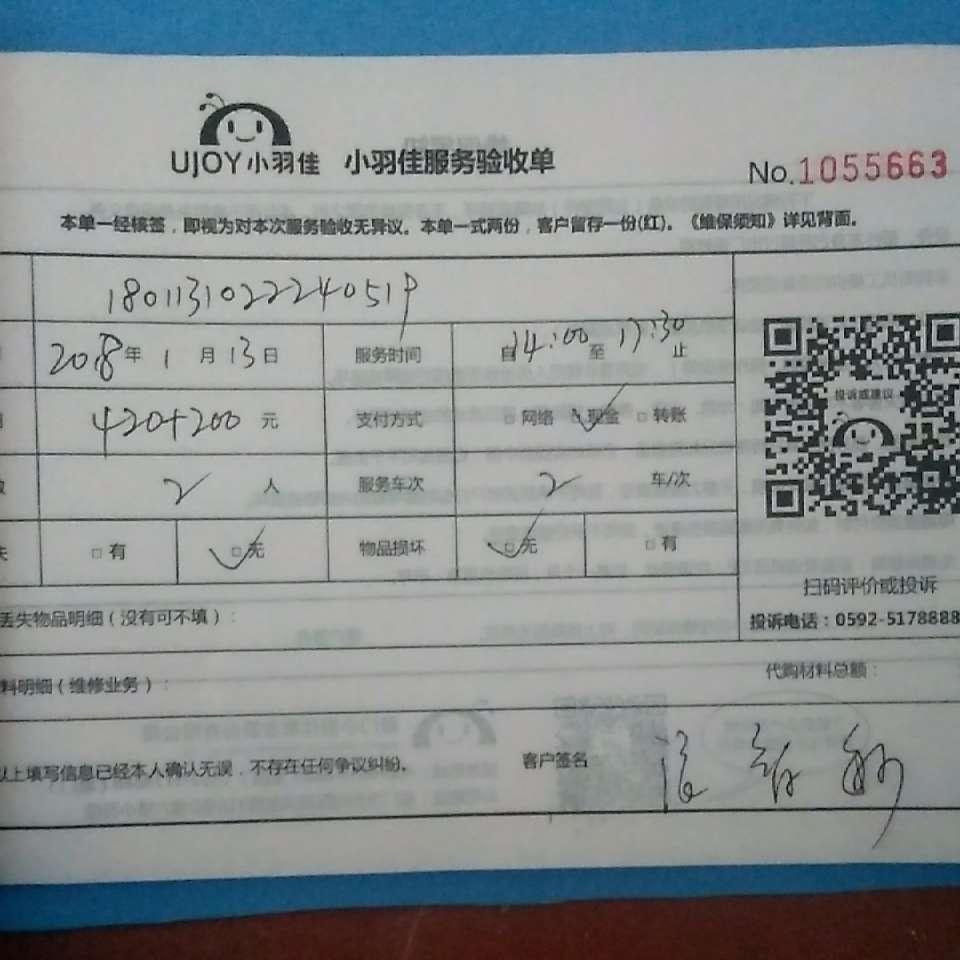 UJOY小羽佳 小羽佳服务验收单
No.1055663
本单一经核签，即视为对本次服务验收无异议。本单一式两份，客户留存一份(红)。《维保须知》详见背面。
180113102224051P
2018年 1 月 13 日 服务时间 自 14:00 至 17:30 止
420+200 元 支付方式 □ 网络 □ 现金 □ 转账
投诉或建议
2 人 服务车次 2 车/次
□ 有 □ 无 物品损坏 □ 无 □ 有
扫码评价或投诉
丢失物品明细（没有可不填）：
投诉电话：0592-5178888
料明细（维修业务）：
代购材料总额：
以上填写信息已经本人确认无误，不存在任何争议纠纷。 客户签名